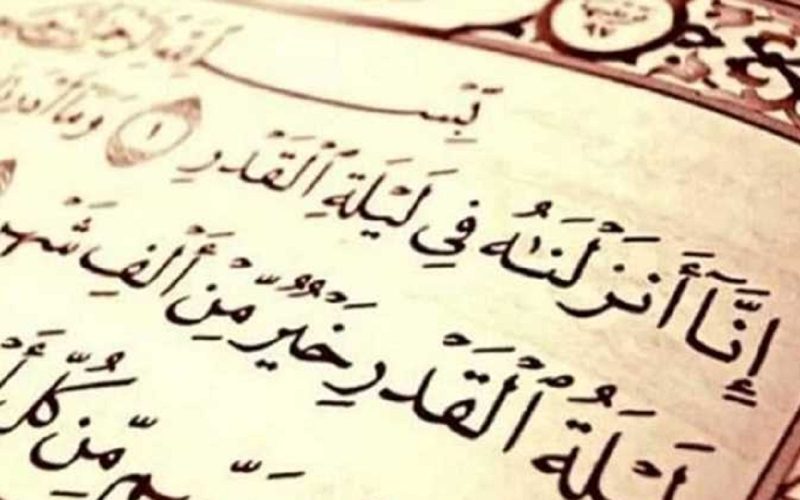 بِسْمِ
إِنَّآ أَنزَلْنَـٰهُ فِى لَيْلَةِ ٱلْقَدْرِ ١ وَمَآ
لَيْلَةُ ٱلْقَدْرِ خَيْرٌ مِّنْ أَلْفِ شَهْرٍ
مِّن كُلِّ